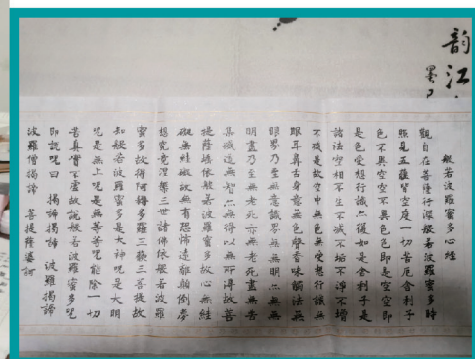 韵江
墨
般若波羅蜜多心經
觀自在菩薩行深般若波羅蜜多時
照見五蘊皆空度一切苦厄舍利子
色不異空空不異色色即是空空即
是色受想行識亦復如是舍利子是
諸法空相不生不滅不垢不淨不增
不減是故空中無色無受想行識無
眼耳鼻舌身意無色聲香味觸法無
眼界乃至無意識界無無明亦無無
明盡乃至無老死亦無老死盡無苦
集滅道無智亦無得以無所得故菩
提薩埵依般若波羅蜜多故心無絓
礙無絓礙故無有恐怖遠離顛倒夢
想究竟涅槃三世諸佛依般若波羅
蜜多故得阿耨多羅三藐三菩提故
知般若波羅蜜多是大神咒是大明
咒是無上咒是無等等咒能除一切
苦真實不虛故說般若波羅蜜多咒
即說咒曰 揭諦揭諦 波羅揭諦
波羅僧揭諦 菩提薩婆訶